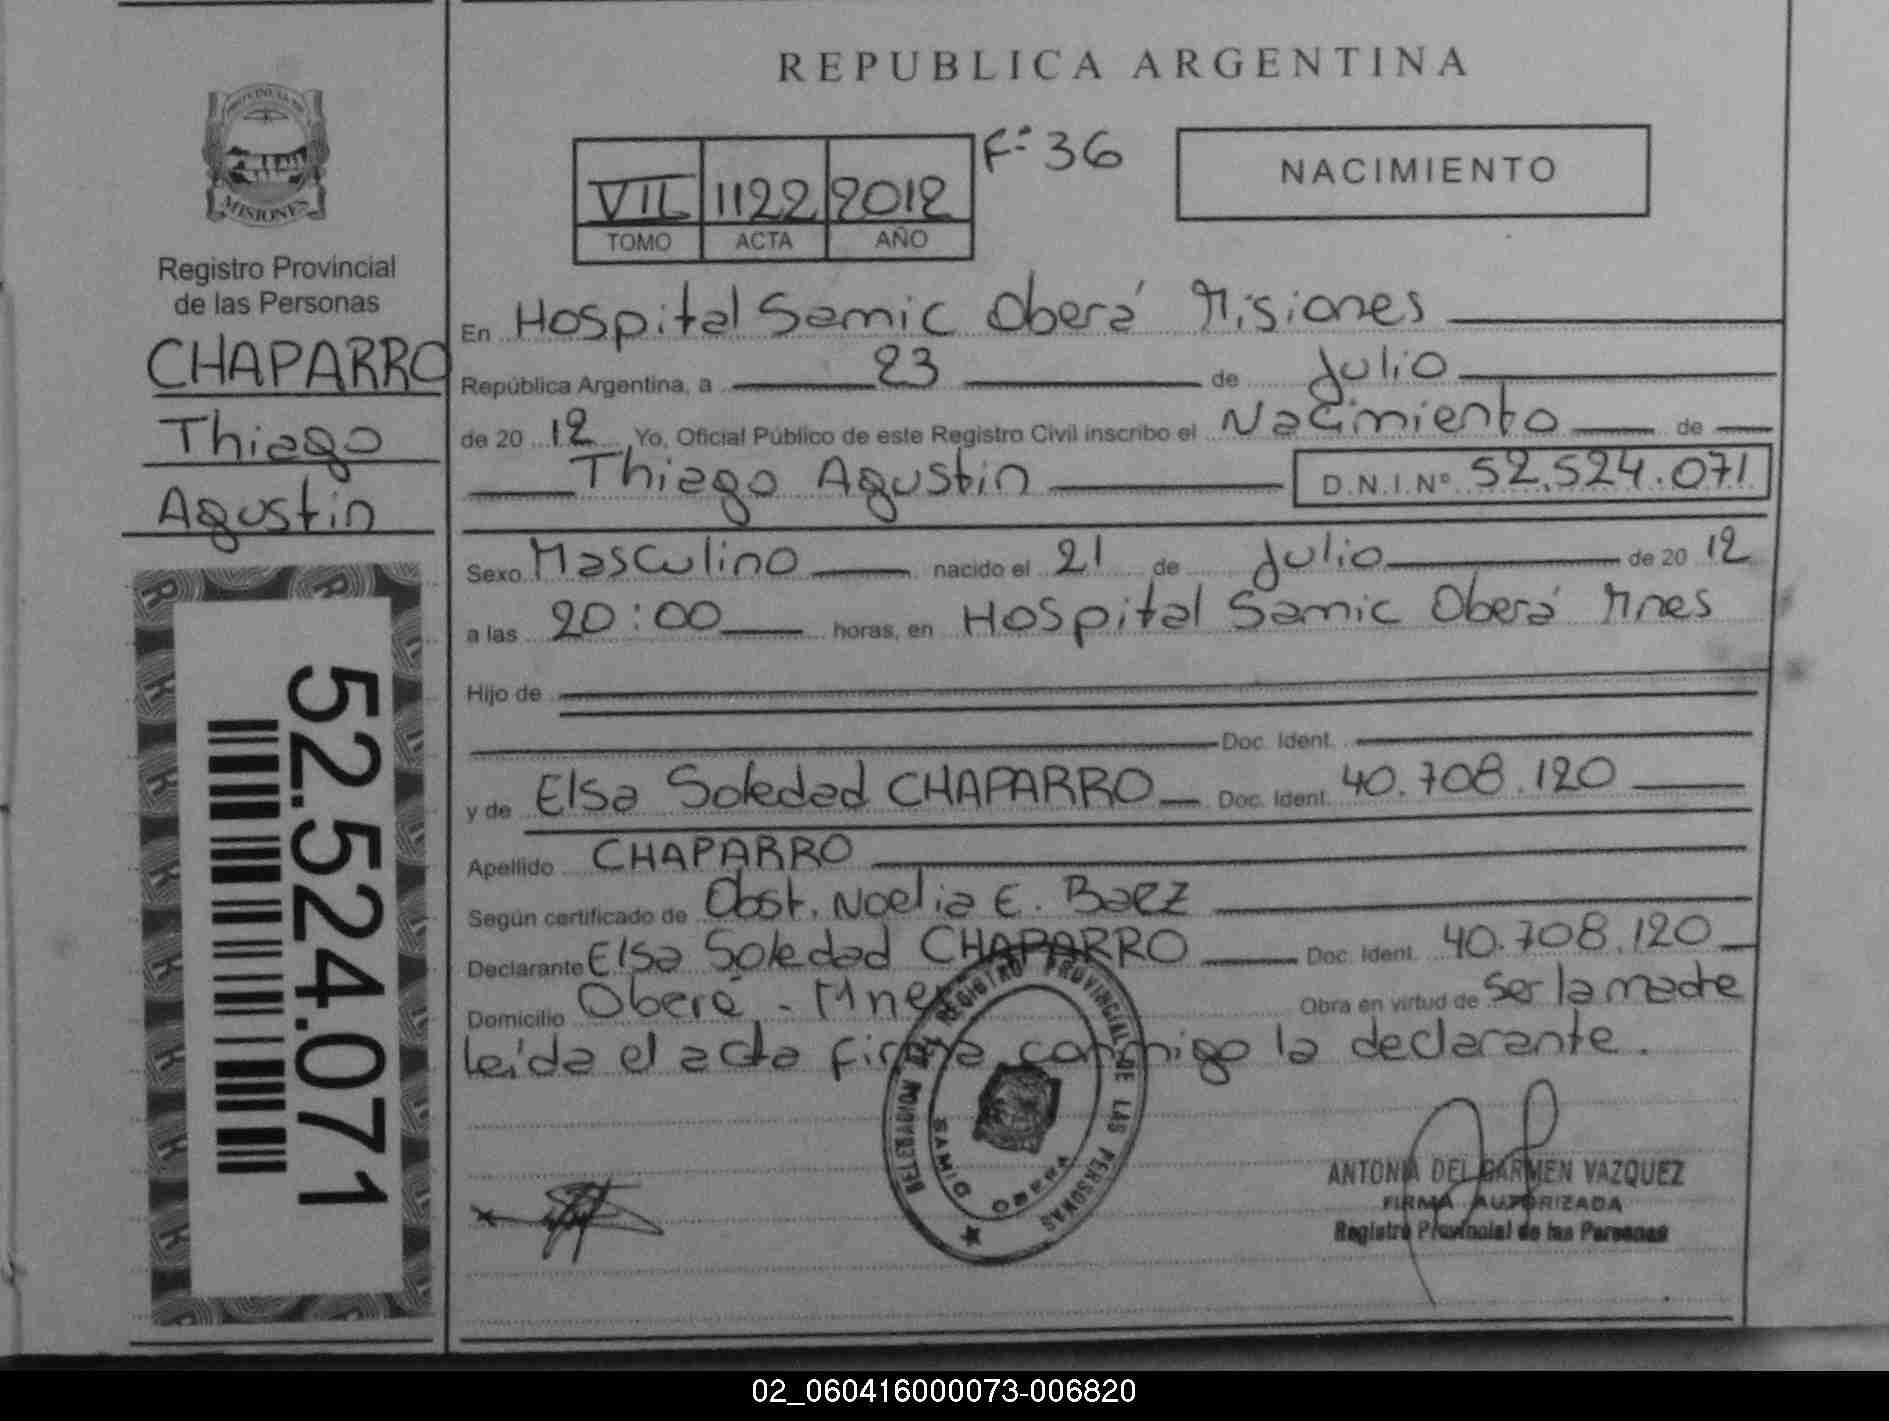 REPUBLICA ARGENTINA
PROVINCIA DE
MISIONES
Registro Provincial
de las Personas
CHAPARRO
Thiago
Agustin
52.524.071
VII 1122 2012
TOMO ACTA AÑO
Fº 36
NACIMIENTO
En Hospital Samic Oberá Misiones
República Argentina, a 23 de Julio
de 20 12 Yo, Oficial Público de este Registro Civil inscribo el Nacimiento de
Thiago Agustin D.N.I.Nº 52.524.071
Sexo Masculino nacido el 21 de Julio de 20 12
a las 20:00 horas, en Hospital Samic Oberá Mnes
Hijo de
Doc. Ident.
y de Elsa Soledad CHAPARRO Doc. Ident. 40.708.120
Apellido CHAPARRO
Según certificado de Obst. Noelia E. Baez
Declarante Elsa Soledad CHAPARRO Doc. Ident. 40.708.120
Domicilio Oberá - Mnes Obra en virtud de ser la madre
leída el acta firma conmigo la declarante.
DELEGACION DEL REGISTRO PROVINCIAL DE LAS PERSONAS
OBERA
ANTONIA DEL CARMEN VAZQUEZ
FIRMA AUTORIZADA
Registro Provincial de las Personas
02_060416000073-006820